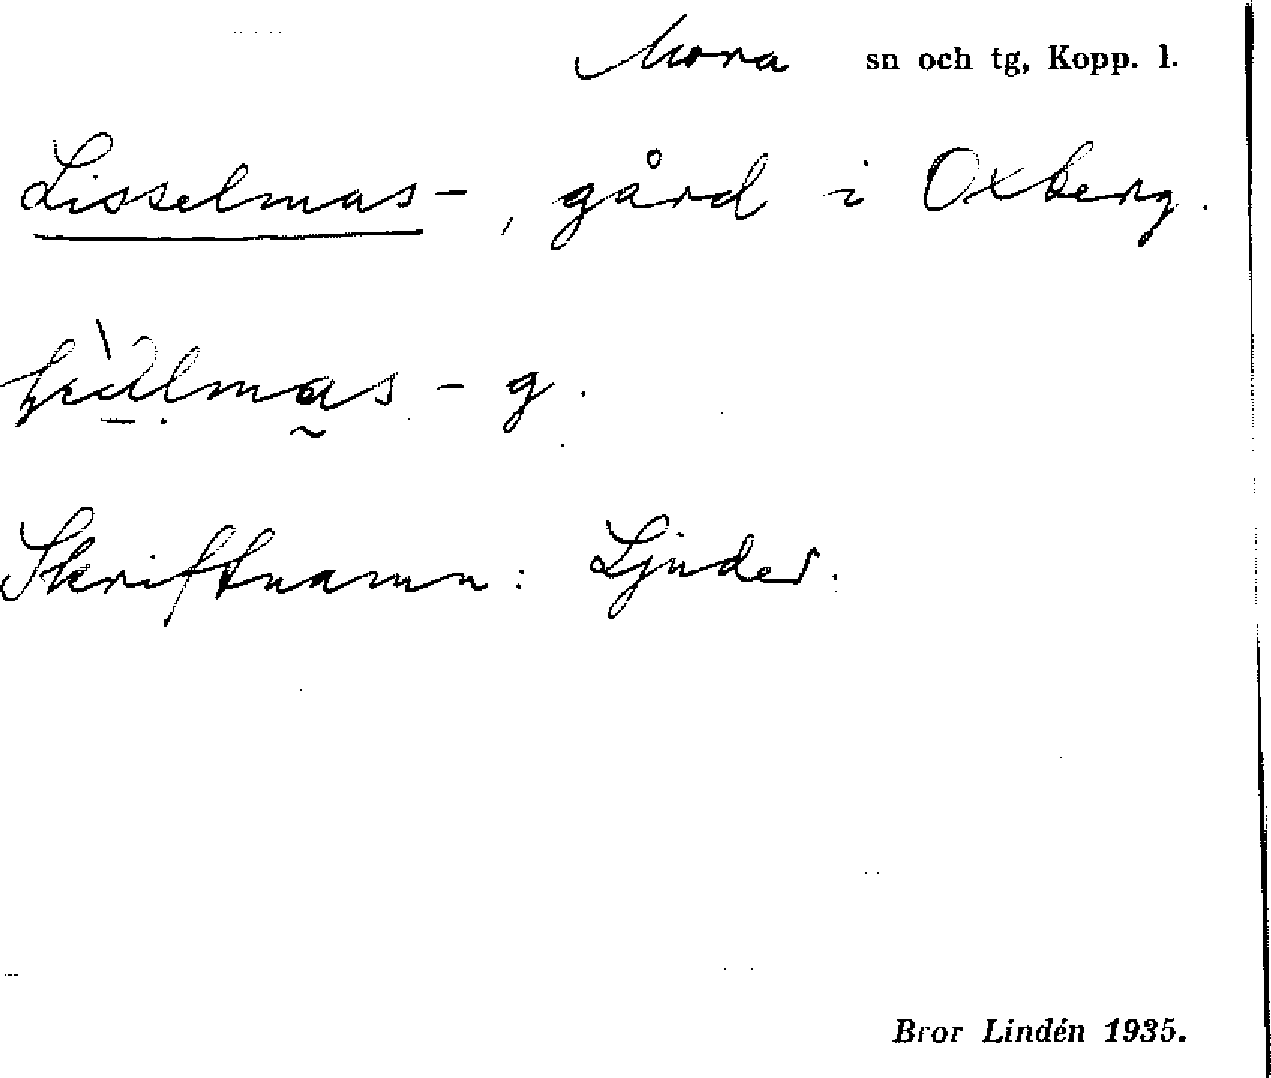 Mora sn och tg, Kopp. l.
Lisselmas-, gård i Oxberg.
- g.
Skriftnamn: Ljuder.
Bror Lindén 1935.